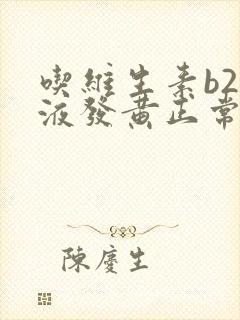 喫維生素b2
液發黃正常
陳慶生